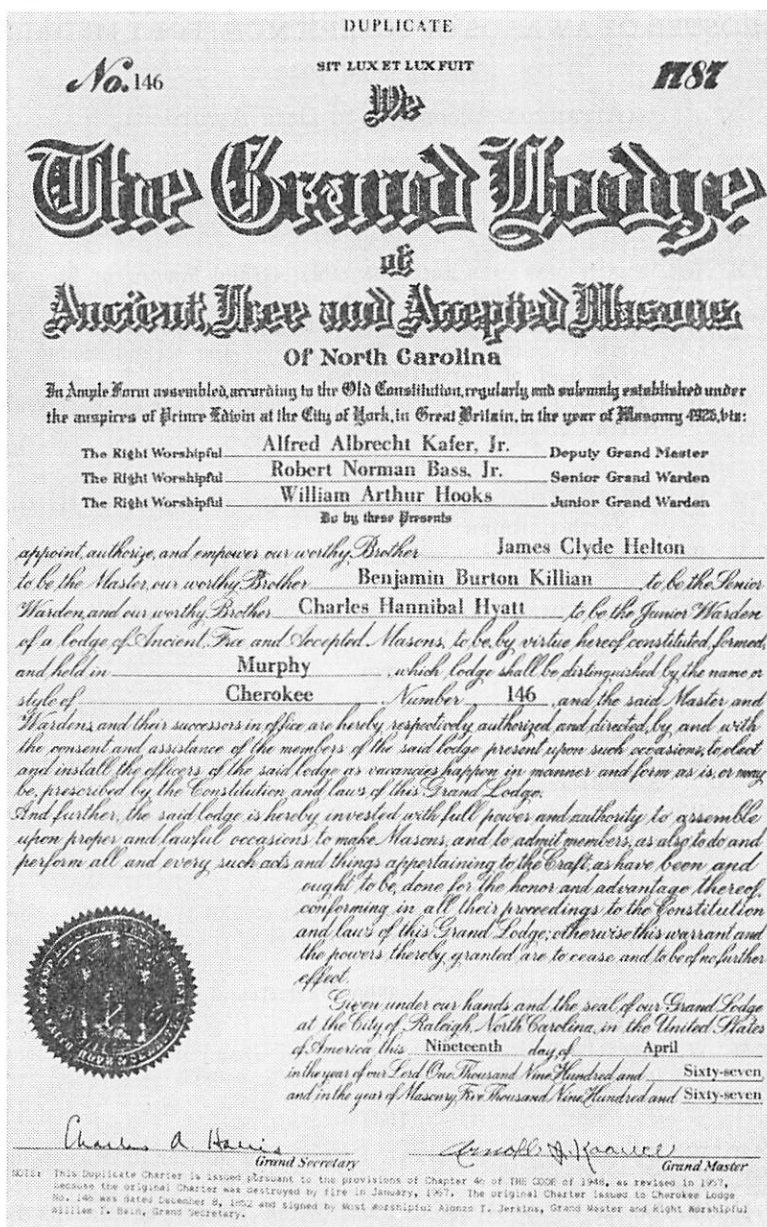 DUPLICATE
No. 146
SIT LUX ET LUX FUIT
1787
We
The Grand Lodge
of
Ancient, Free and Accepted Masons
Of North Carolina
In Ample Form assembled, according to the Old Constitution, regularly and solemnly established under
the auspices of Prince Edwin at the City of York, in Great Britain, in the year of Masonry 4926, viz:
The Right Worshipful Alfred Albrecht Kafer, Jr. Deputy Grand Master
The Right Worshipful Robert Norman Bass, Jr. Senior Grand Warden
The Right Worshipful William Arthur Hooks Junior Grand Warden
Do by these Presents
appoint, authorize, and empower our worthy Brother James Clyde Helton
to be the Master, our worthy Brother Benjamin Burton Killian to be the Senior
Warden, and our worthy Brother Charles Hannibal Hyatt to be the Junior Warden
of a lodge of Ancient, Free and Accepted Masons, to be, by virtue hereof constituted, formed,
and held in Murphy, which lodge shall be distinguished by the name or
style of Cherokee Number 146, and the said Master and
Wardens, and their successors in office, are hereby respectively authorized and directed, by and with
the consent and assistance of the members of the said lodge present upon such occasions, to elect
and install the officers of the said lodge as vacancies happen in manner and form as is, or may
be, prescribed by the Constitution and laws of this Grand Lodge.
And further, the said lodge is hereby invested with full power and authority to assemble
upon proper and lawful occasions to make Masons, and to admit members, as also to do and
perform all and every such acts and things appertaining to the Craft, as have been and
ought to be, done for the honor and advantage thereof,
conforming in all their proceedings to the Constitution
and laws of this Grand Lodge; otherwise this warrant and
the powers thereby granted are to cease and to be of no further
effect.
Given under our hands and the seal of our Grand Lodge
at the City of Raleigh, North Carolina, in the United States
of America this Nineteenth day of April
in the year of our Lord One Thousand Nine Hundred and Sixty-seven
and in the year of Masonry Five Thousand Nine Hundred and Sixty-seven
Charles A. Harris
Grand Secretary
Grand Master
NOTE: This Duplicate Charter is issued pursuant to the provisions of Chapter 46 of THE CODE of 1948, as revised in 1957,
because the original Charter was destroyed by fire in January, 1967. The original Charter issued to Cherokee Lodge
No. 146 was dated December 8, 1852 and signed by Most Worshipful Alonzo T. Jerkins, Grand Master and Right Worshipful
William T. Bain, Grand Secretary.